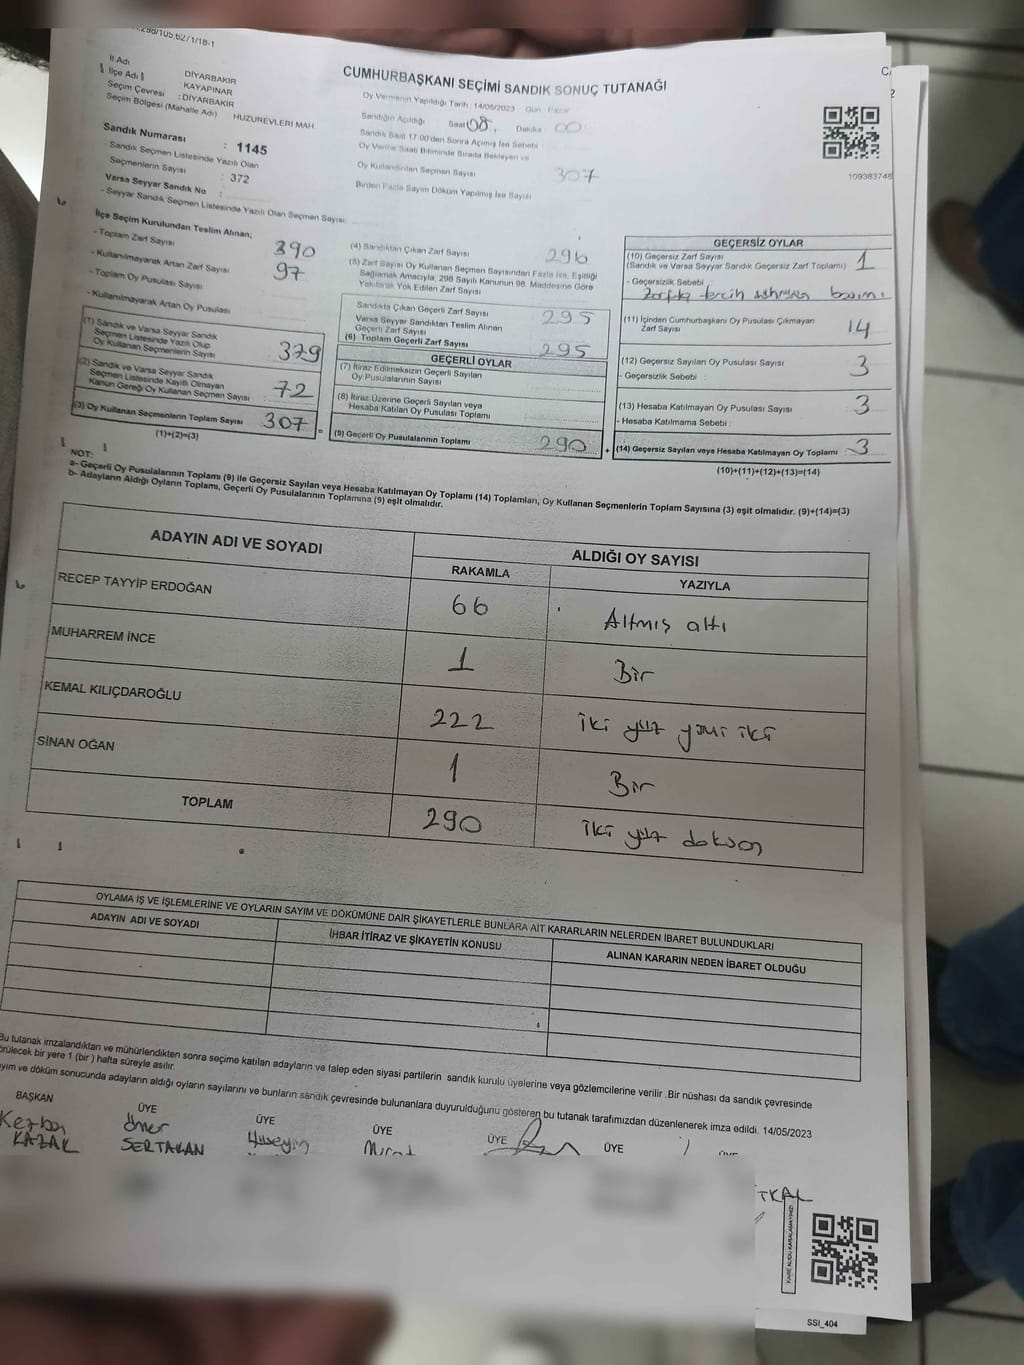 298/105,62/1/18-1
CUMHURBAŞKANI SEÇİMİ SANDIK SONUÇ TUTANAĞI
İl Adı DİYARBAKIR
İlçe Adı KAYAPINAR
Seçim Çevresi : DİYARBAKIR
Seçim Bölgesi (Mahalle Adı) HUZUREVLERİ MAH
Sandık Numarası : 1145
- Sandık Seçmen Listesinde Yazılı Olan
Seçmenlerin Sayısı : 372
Varsa Seyyar Sandık No :
- Seyyar Sandık Seçmen Listesinde Yazılı Olan Seçmen Sayısı:
Oy Vermenin Yapıldığı Tarih : 14/05/2023 Gün : Pazar
Sandığın Açıldığı Saat 08, Dakika 00
Sandık Saat 17:00'den Sonra Açılmış İse Sebebi
Oy Verme Saati Bitiminde Sırada Bekleyen ve
Oy Kullandırılan Seçmen Sayısı 307
Birden Fazla Sayım Döküm Yapılmış İse Sayısı
109383748
İlçe Seçim Kurulundan Teslim Alınan;
- Toplam Zarf Sayısı 390
- Kullanılmayarak Artan Zarf Sayısı 97
- Toplam Oy Pusulası Sayısı
- Kullanılmayarak Artan Oy Pusulası
(1) Sandık ve Varsa Seyyar Sandık
Seçmen Listesinde Yazılı Olup
Oy Kullanan Seçmenlerin Sayısı 379
(2) Sandık ve Varsa Seyyar Sandık
Seçmen Listesinde Kayıtlı Olmayan
Kanun Gereği Oy Kullanan Seçmen Sayısı 72
(3) Oy Kullanan Seçmenlerin Toplam Sayısı 307
(1)+(2)=(3)
(4) Sandıktan Çıkan Zarf Sayısı 296
(5) Zarf Sayısı Oy Kullanan Seçmen Sayısından Fazla İse, Eşitliği
Sağlamak Amacıyla, 298 Sayılı Kanunun 98. Maddesine Göre
Yakılarak Yok Edilen Zarf Sayısı
Sandıkta Çıkan Geçerli Zarf Sayısı 295
Varsa Seyyar Sandıktan Teslim Alınan
Geçerli Zarf Sayısı
(6) Toplam Geçerli Zarf Sayısı 295
GEÇERLİ OYLAR
(7) İtiraz Edilmeksizin Geçerli Sayılan
Oy Pusulalarının Sayısı
(8) İtiraz Üzerine Geçerli Sayılan veya
Hesaba Katılan Oy Pusulası Toplamı
(9) Geçerli Oy Pusulalarının Toplamı 290
GEÇERSİZ OYLAR
(10) Geçersiz Zarf Sayısı
(Sandık ve Varsa Seyyar Sandık Geçersiz Zarf Toplamı) 1
- Geçersizlik Sebebi
(11) İçinden Cumhurbaşkanı Oy Pusulası Çıkmayan
Zarf Sayısı 14
(12) Geçersiz Sayılan Oy Pusulası Sayısı 3
- Geçersizlik Sebebi :
(13) Hesaba Katılmayan Oy Pusulası Sayısı 3
- Hesaba Katılmama Sebebi
(14) Geçersiz Sayılan veya Hesaba Katılmayan Oy Toplamı : 3
(10)+(11)+(12)+(13)=(14)
NOT:
a- Geçerli Oy Pusulalarının Toplamı (9) ile Geçersiz Sayılan veya Hesaba Katılmayan Oy Toplamı (14) Toplamları, Oy Kullanan Seçmenlerin Toplam Sayısına (3) eşit olmalıdır. (9)+(14)=(3)
b- Adayların Aldığı Oyların Toplamı, Geçerli Oy Pusulalarının Toplamına (9) eşit olmalıdır.
ADAYIN ADI VE SOYADI ALDIĞI OY SAYISI
RAKAMLA YAZIYLA
RECEP TAYYİP ERDOĞAN 66 Altmış altı
MUHARREM İNCE 1 Bir
KEMAL KILIÇDAROĞLU 222 iki yüz yirmi iki
SİNAN OĞAN 1 Bir
TOPLAM 290 iki yüz doksan
OYLAMA İŞ VE İŞLEMLERİNE VE OYLARIN SAYIM VE DÖKÜMÜNE DAİR ŞİKAYETLERLE BUNLARA AİT KARARLARIN NELERDEN İBARET BULUNDUKLARI
ADAYIN ADI VE SOYADI İHBAR İTİRAZ VE ŞİKAYETİN KONUSU ALINAN KARARIN NEDEN İBARET OLDUĞU
Bu tutanak imzalandıktan ve mühürlendikten sonra seçime katılan adayların ve talep eden siyasi partilerin sandık kurulu üyelerine veya gözlemcilerine verilir .Bir nüshası da sandık çevresinde
örülecek bir yere 1 (bir ) hafta süreyle asılır.
yım ve döküm sonucunda adayların aldığı oyların sayılarını ve bunların sandık çevresinde bulunanlara duyurulduğunu gösteren bu tutanak tarafımızdan düzenlenerek imza edildi. 14/05/2023
BAŞKAN ÜYE ÜYE ÜYE ÜYE ÜYE
Kezban Ömer Hüseyin Murat
KAZAK SERTAKAN
TKAL
KARE KODU KARALAMAYINIZ!
SSI_404